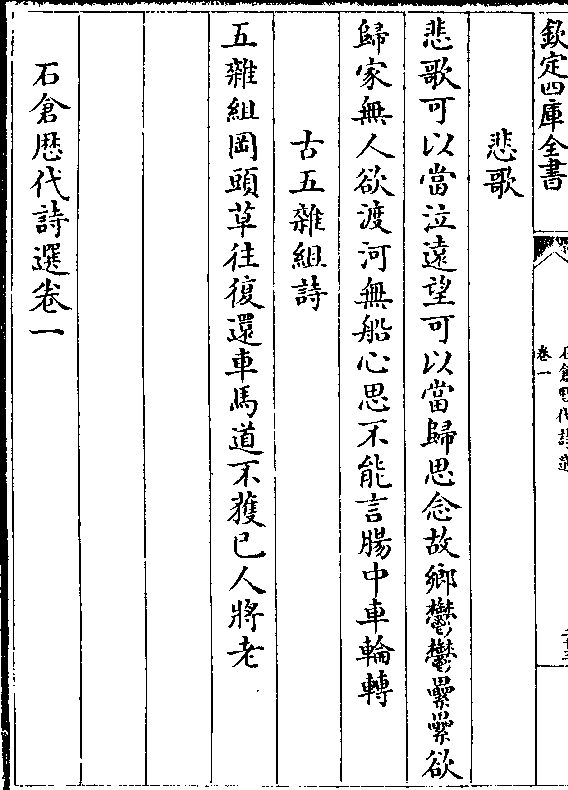 欽定四庫全書
卷一
悲歌
悲歌可以當泣遠望可以當歸思念故鄉鬱鬱纍纍欲
歸家無人欲渡河無船心思不能言腸中車輪轉
古五雜組詩
五雜組岡頭草往復還車馬道不獲已人將老
石倉歴代詩選卷一